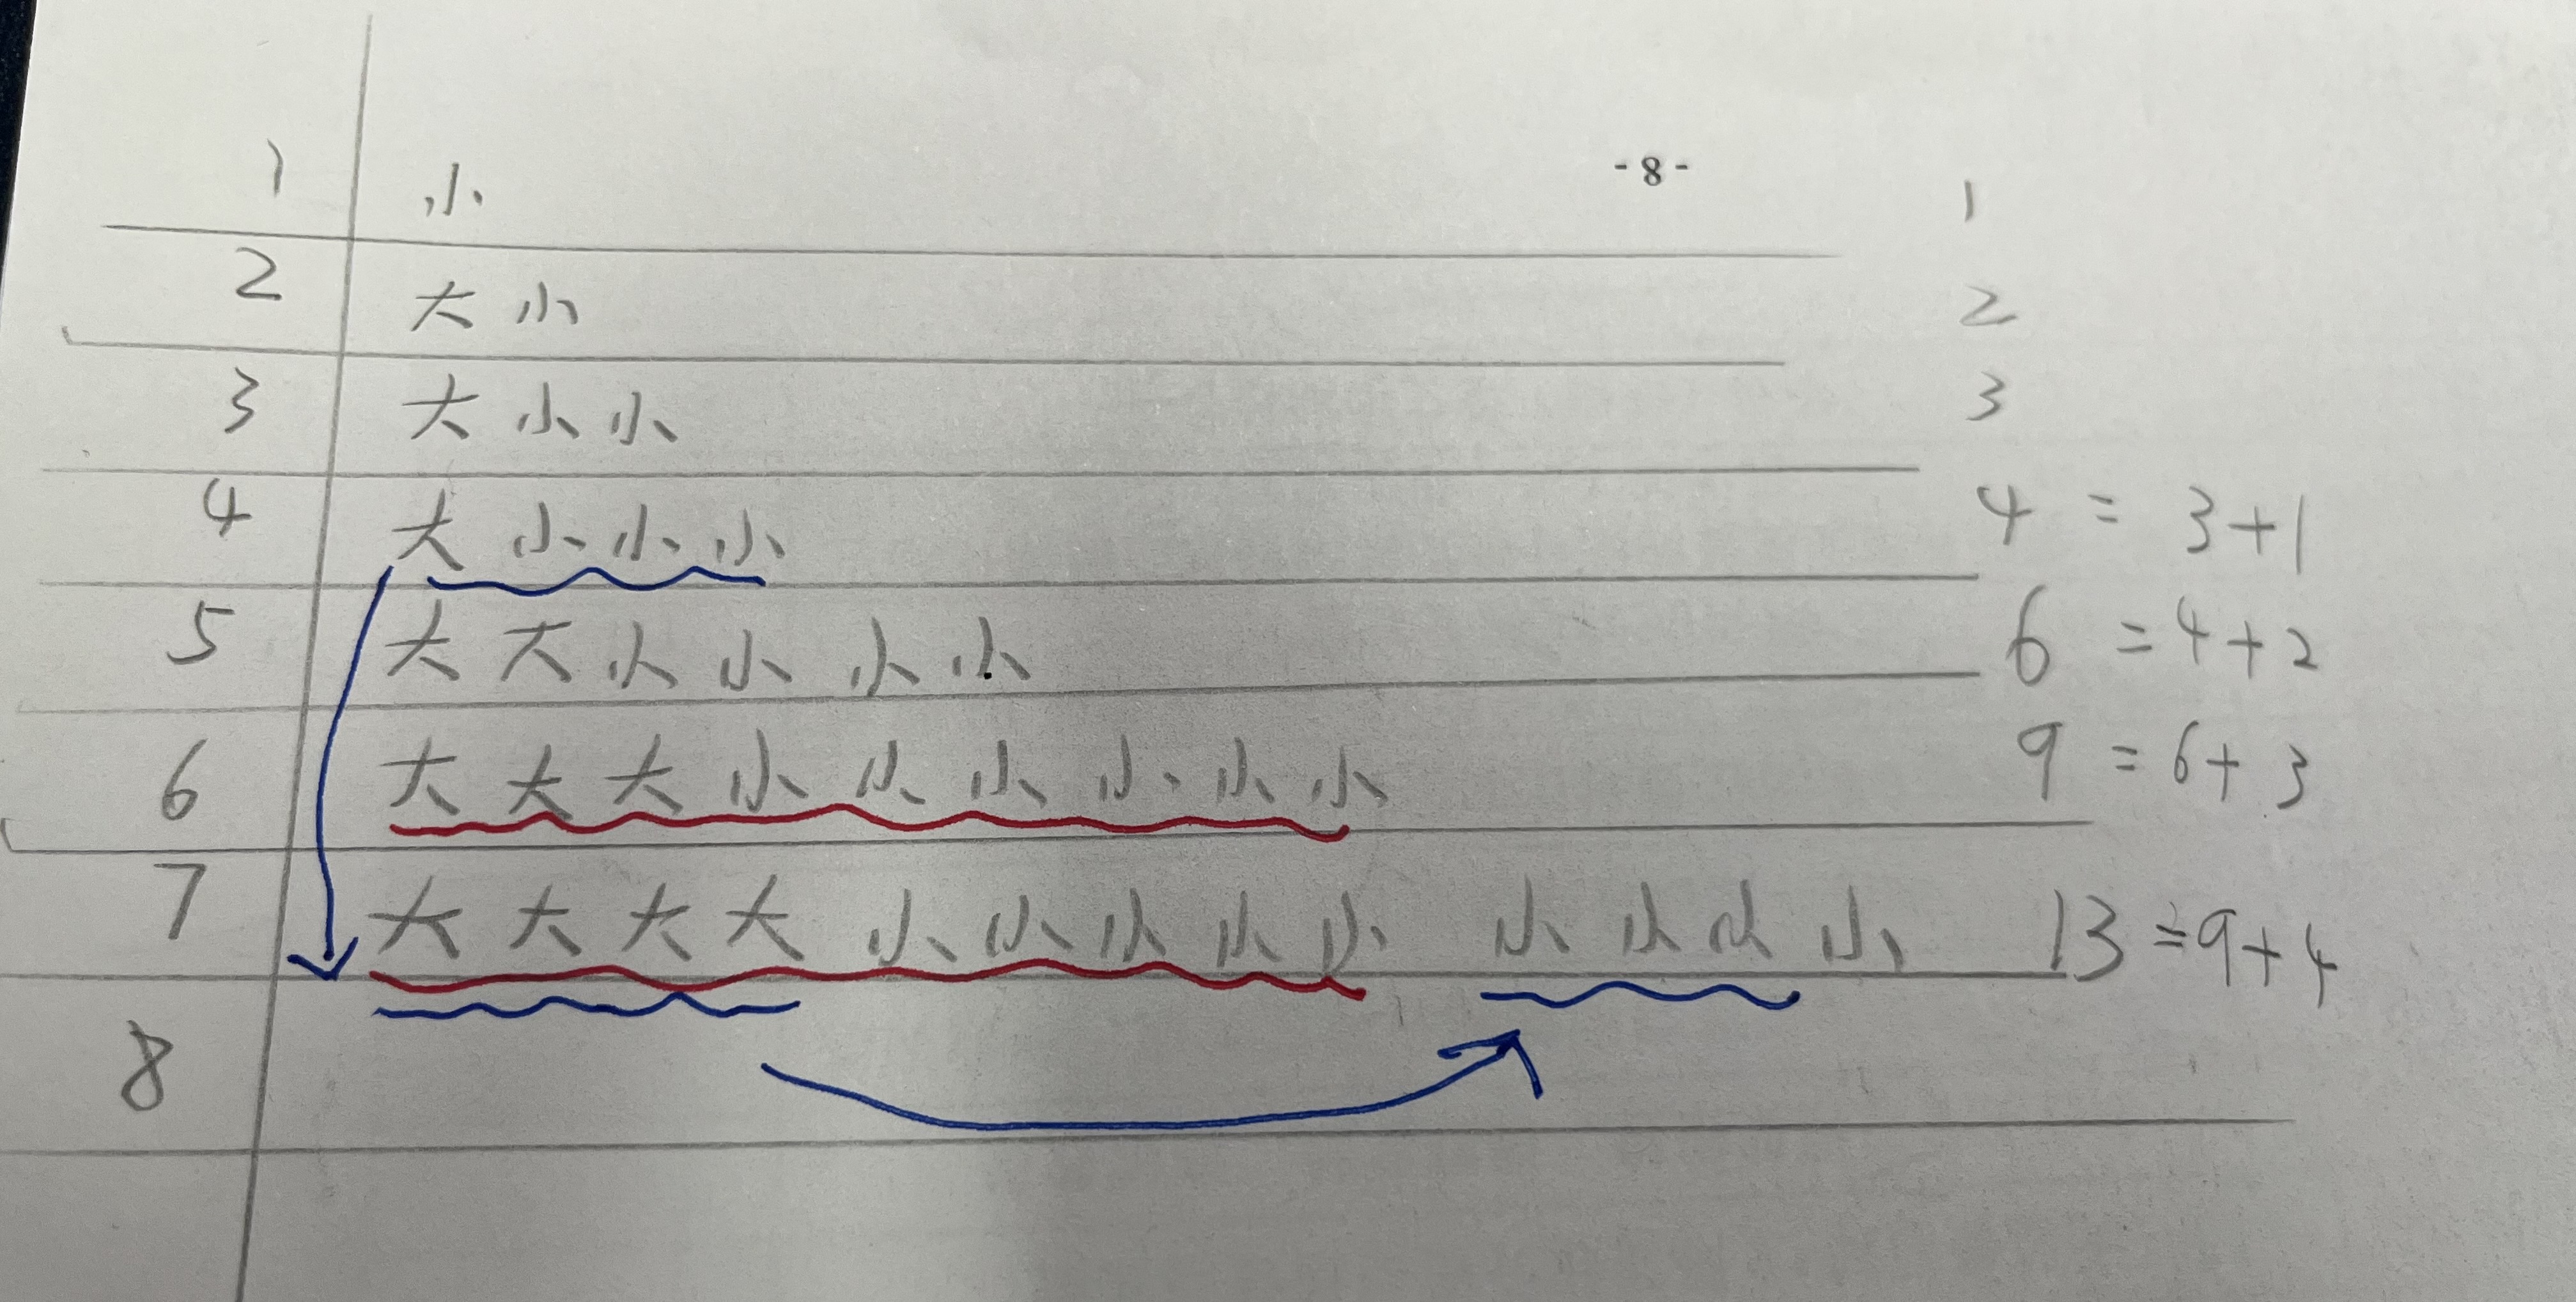 - 8 -
1 小 1
2 大 小 2
3 大 小 小 3
4 大 小 小 小 4 = 3+1
5 大 大 小 小 小 小 6 = 4+2
6 大 大 大 小 小 小 小 小 小 9 = 6+3
7 大 大 大 大 小 小 小 小 小 小 小 小 小 13 = 9+4
8